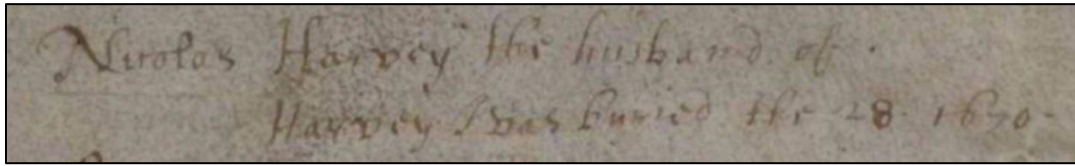 Nicolas Harvey the husband of
Harvey was buried the 28 1670